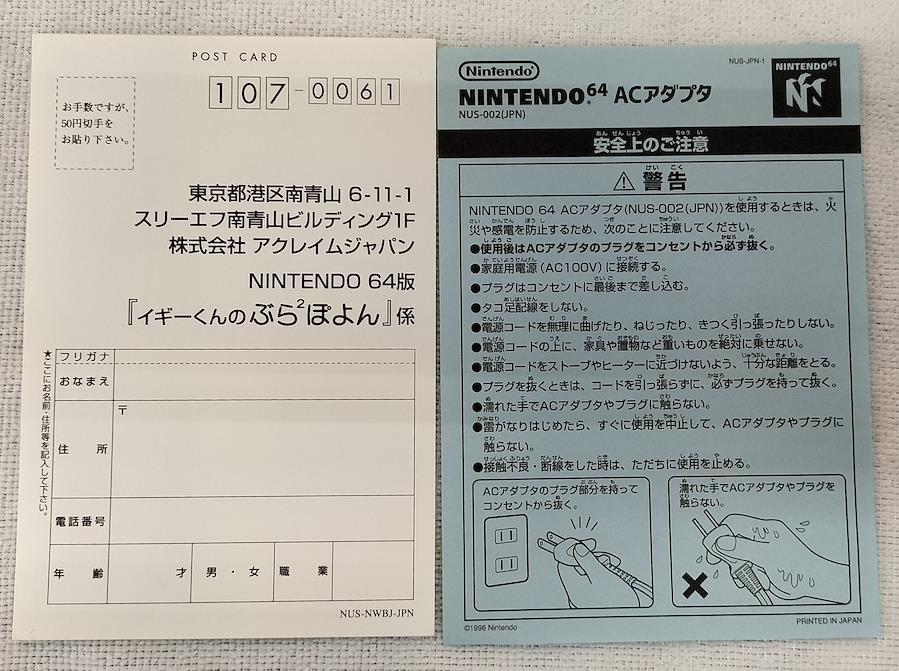 POST CARD
107-0061
お手数ですが、
50円切手を
お貼り下さい。
東京都港区南青山 6-11-1
スリーエフ南青山ビルディング1F
株式会社 アクレイムジャパン
NINTENDO 64版
『イギーくんのぶら²ぽよん』係
★ここにお名前・住所等を記入して下さい。
フリガナ
おなまえ
住所
〒
電話番号
年齢 才 男・女 職業
NUS-NWBJ-JPN
NUS-JPN-1
Nintendo
NINTENDO64 ACアダプタ
NUS-002(JPN)
NINTENDO64
安全上のご注意
警告
NINTENDO 64 ACアダプタ(NUS-002(JPN))を使用するときは、火
災や感電を防止するため、次のことに注意してください。
●使用後はACアダプタのプラグをコンセントから必ず抜く。
●家庭用電源(AC100V)に接続する。
●プラグはコンセントに最後まで差し込む。
●タコ足配線をしない。
●電源コードを無理に曲げたり、ねじったり、きつく引っ張ったりしない。
●電源コードの上に、家具や置物など重いものを絶対に乗せない。
●電源コードをストーブやヒーターに近づけないよう、十分な距離をとる。
●プラグを抜くときは、コードを引っ張らずに、必ずプラグを持って抜く。
●濡れた手でACアダプタやプラグに触らない。
●雷がなりはじめたら、すぐに使用を中止して、ACアダプタやプラグに
触らない。
●接触不良・断線をした時は、ただちに使用を止める。
ACアダプタのプラグ部分を持って
コンセントから抜く。
濡れた手でACアダプタやプラグを
触らない。
©1996 Nintendo
PRINTED IN JAPAN